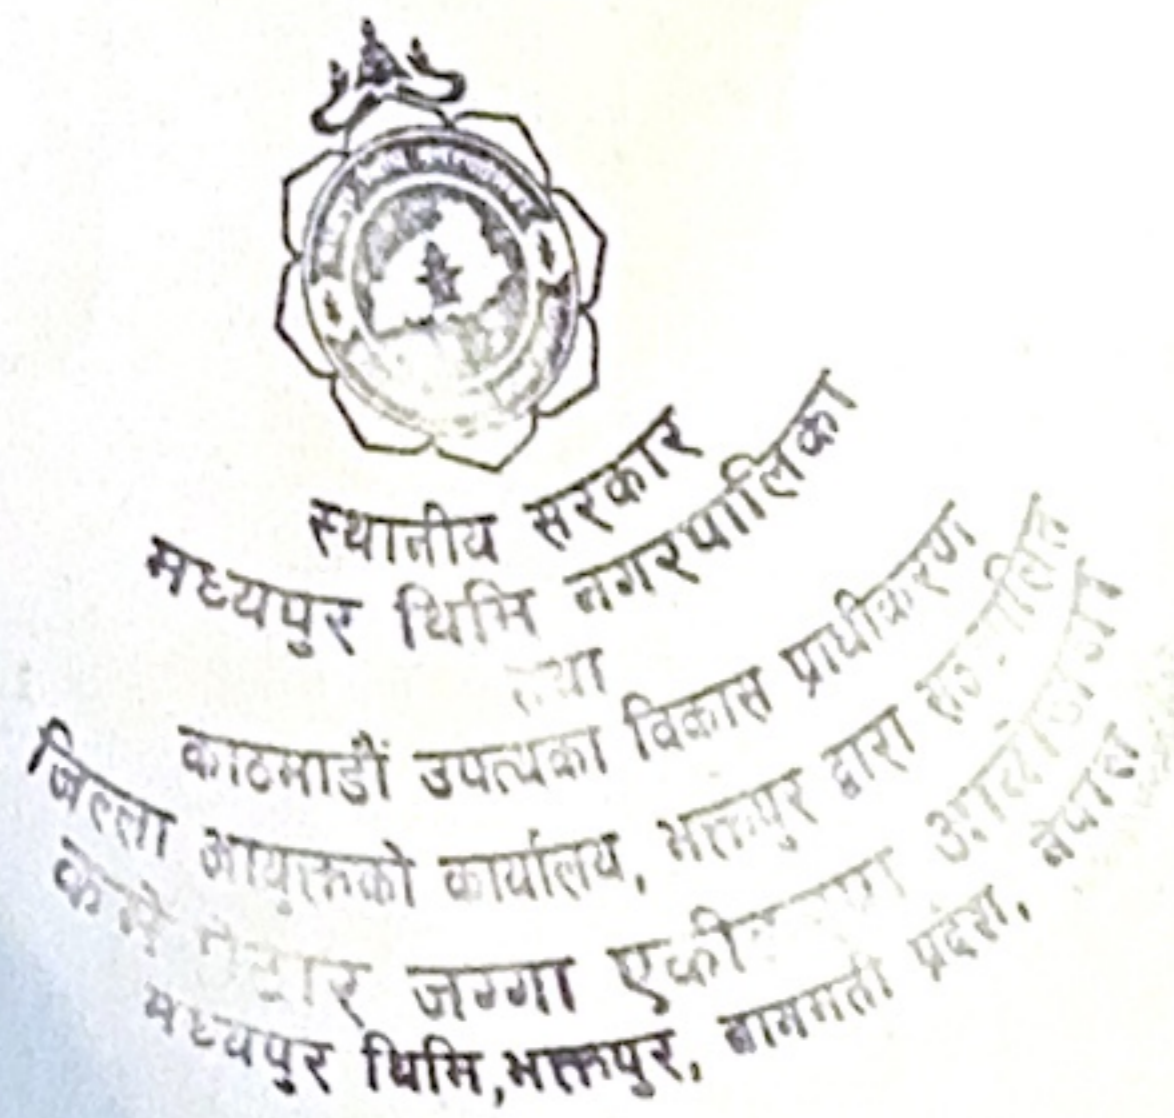 स्थानीय सरकार
मध्यपुर थिमि नगरपालिका
तथा
काठमाडौं उपत्यका विकास प्राधीकरण
जिल्ला आयुक्तको कार्यालय, भक्तपुर द्वारा
जग्गा
मध्यपुर थिमि,भक्तपुर, बागमती प्रदेश, नेपाल